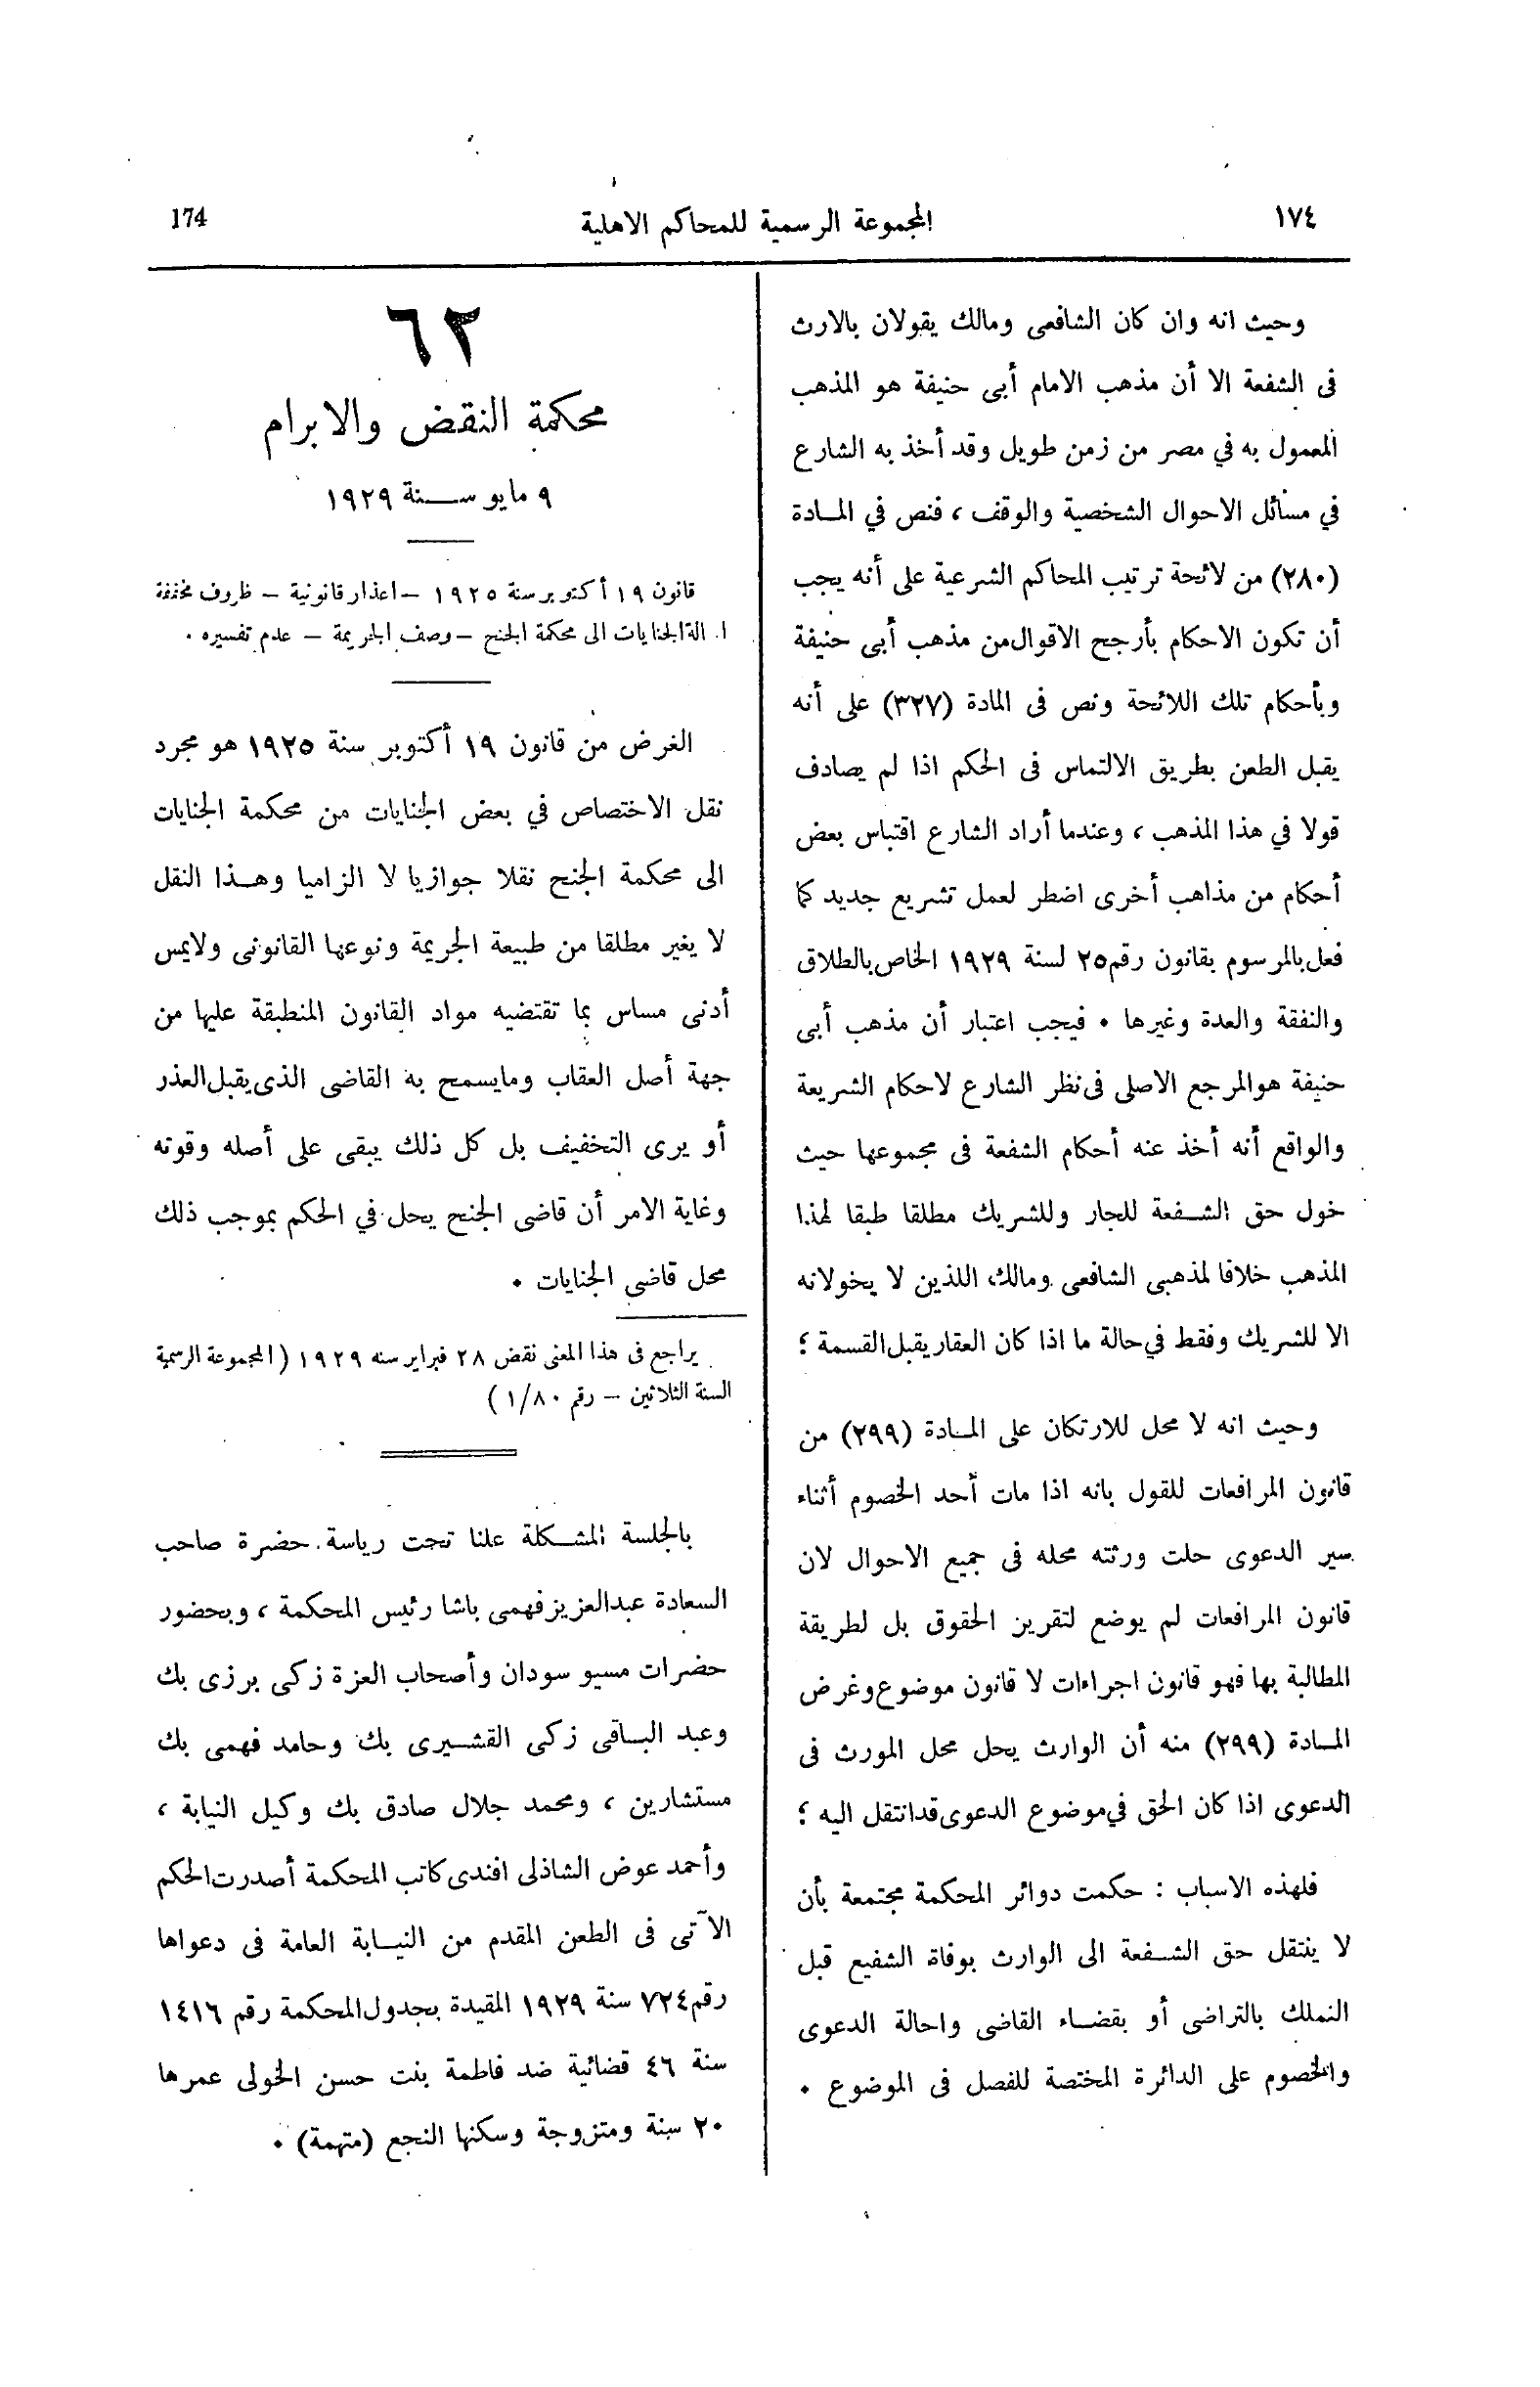 ١٧٤ المجموعة الرسمية للمحاكم الاهلية 174
وحيث انه وان كان الشافعى ومالك يقولان بالارث
فى الشفعة الا أن مذهب الامام أبى حنيفة هو المذهب
المعمول به في مصر من زمن طويل وقد أخذ به الشارع
في مسائل الاحوال الشخصية والوقف ، فنص في المادة
(٢٨٠) من لائحة ترتيب المحاكم الشرعية على أنه يجب
أن تكون الاحكام بأرجح الاقوال من مذهب أبى حنيفة
وبأحكام تلك اللائحة ونص فى المادة (٣٢٧) على أنه
يقبل الطعن بطريق الالتماس فى الحكم اذا لم يصادف
قولا في هذا المذهب ، وعندما أراد الشارع اقتباس بعض
أحكام من مذاهب أخرى اضطر لعمل تشريع جديد كما
فعل بالمرسوم بقانون رقم ٢٥ لسنة ١٩٢٩ الخاص بالطلاق
والنفقة والعدة وغيرها . فيجب اعتبار أن مذهب أبى
حنيفة هو المرجع الاصلى فى نظر الشارع لاحكام الشريعة
والواقع أنه أخذ عنه أحكام الشفعة فى مجموعها حيث
خول حق الشفعة للجار وللشريك مطلقا طبقا لهذا
المذهب خلافا لمذهبى الشافعى ومالك اللذين لا يخولانه
الا للشريك وفقط في حالة ما اذا كان العقار يقبل القسمة ؛
وحيث انه لا محل للارتكان على المادة (٢٩٩) من
قانون المرافعات للقول بانه اذا مات أحد الخصوم أثناء
سير الدعوى حلت ورثته محله فى جميع الاحوال لان
قانون المرافعات لم يوضع لتقرير الحقوق بل لطريقة
المطالبة بها فهو قانون اجراءات لا قانون موضوع وغرض
المادة (٢٩٩) منه أن الوارث يحل محل المورث فى
الدعوى اذا كان الحق في موضوع الدعوى قد انتقل اليه ؛
فلهذه الاسباب : حكمت دوائر المحكمة مجتمعة بأن
لا ينتقل حق الشفعة الى الوارث بوفاة الشفيع قبل
التملك بالتراضى أو بقضاء القاضى واحالة الدعوى
والخصوم على الدائرة المختصة للفصل فى الموضوع .
٦٢
محكمة النقض والابرام
٩ مايو سنة ١٩٢٩
قانون ١٩ أكتوبر سنة ١٩٢٥ – اعذار قانونية – ظروف مخففة
احالة الجنايات الى محكمة الجنح – وصف الجريمة – عدم تفسيره .
الغرض من قانون ١٩ أكتوبر سنة ١٩٢٥ هو مجرد
نقل الاختصاص في بعض الجنايات من محكمة الجنايات
الى محكمة الجنح نقلا جوازيا لا الزاميا وهذا النقل
لا يغير مطلقا من طبيعة الجريمة ونوعها القانونى ولا يمس
أدنى مساس بما تقتضيه مواد القانون المنطبقة عليها من
جهة أصل العقاب وما يسمح به القاضى الذى يقبل العذر
أو يرى التخفيف بل كل ذلك يبقى على أصله وقوته
وغاية الامر أن قاضى الجنح يحل في الحكم بموجب ذلك
محل قاضى الجنايات .
يراجع فى هذا المعنى نقض ٢٨ فبراير سنه ١٩٢٩ (المجموعة الرسمية
السنة الثلاثين – رقم ١/٨٠)
بالجلسة المشكلة علنا تحت رياسة حضرة صاحب
السعادة عبد العزيز فهمى باشا رئيس المحكمة ، وبحضور
حضرات مسيو سودان وأصحاب العزة زكى برزى بك
وعبد الباقى زكى القشيرى بك وحامد فهمى بك
مستشارين ، ومحمد جلال صادق بك وكيل النيابة ،
وأحمد عوض الشاذلى افندى كاتب المحكمة أصدرت الحكم
الآتى فى الطعن المقدم من النيابة العامة فى دعواها
رقم ٧٢٤ سنة ١٩٢٩ المقيدة بجدول المحكمة رقم ١٤١٦
سنة ٤٦ قضائية ضد فاطمة بنت حسن الخولى عمرها
٢٠ سنة ومتزوجة وسكنها النجع (متهمة) .